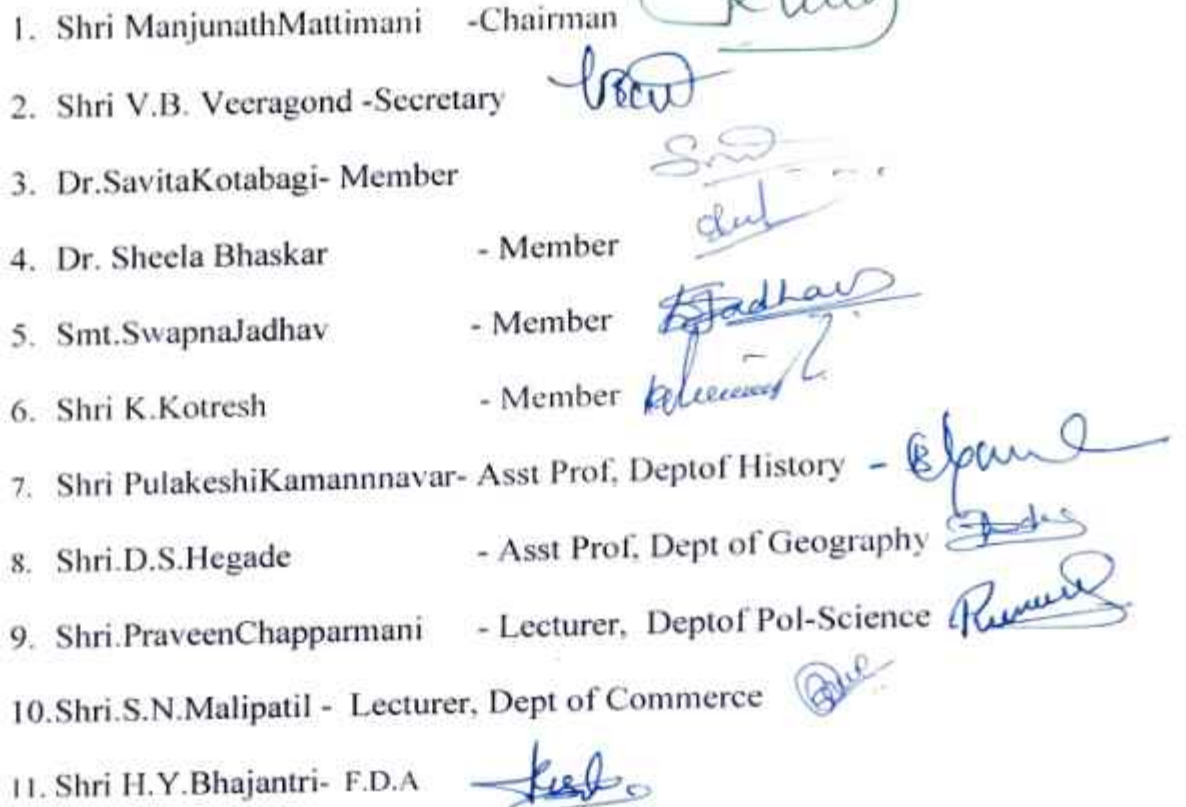 1. Shri ManjunathMattimani -Chairman
2. Shri V.B. Veeragond -Secretary
3. Dr.SavitaKotabagi- Member
4. Dr. Sheela Bhaskar - Member
5. Smt.SwapnaJadhav - Member
6. Shri K.Kotresh - Member
7. Shri PulakeshiKamannnavar- Asst Prof, Deptof History -
8. Shri.D.S.Hegade - Asst Prof, Dept of Geography
9. Shri.PraveenChapparmani - Lecturer, Deptof Pol-Science
10.Shri.S.N.Malipatil - Lecturer, Dept of Commerce
11. Shri H.Y.Bhajantri- F.D.A